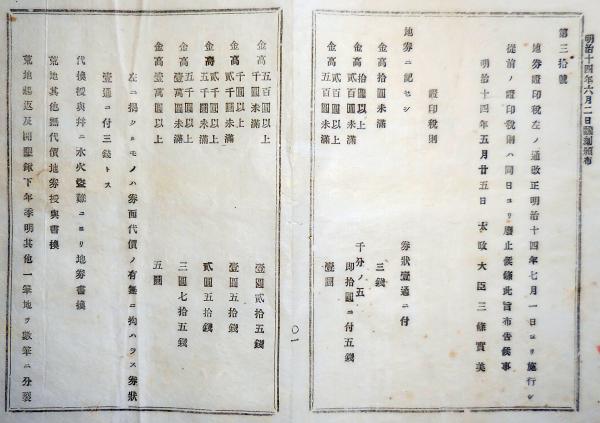 明治十四年六月二日飜刻頒布
第三拾號
地券證印稅左ノ通改正明治十四年七月一日ヨリ施行シ
從前ノ證印稅則ハ同日ヨリ廢止候條此旨布吿候事
明治十四年五月廿五日 太政大臣三條實美
證印稅則
地券ニ記セシ 券狀壹通ニ付
金高拾圓未滿 三錢
金高拾圓以上貳百圓未滿 千分ノ五卽拾圓ニ付五錢
金高貳百圓以上五百圓未滿 壹圓
〇一
金高五百圓以上千圓未滿 壹圓貳拾五錢
金高千圓以上貳千圓未滿 壹圓五拾錢
金高貳千圓以上五千圓未滿 貳圓五拾錢
金高五千圓以上壹萬圓未滿 三圓七拾五錢
金高壹萬圓以上 五圓
左ニ揭クルモノハ券面代價ノ有無ニ拘ハラス券狀
壹通ニ付三錢トス
代換授與幷ニ水火盜難ニヨリ地券書換
荒地其他無代價地券授與書換
荒地起返及開墾鍬下年季明其他一筆地ヲ數筆ニ分裂